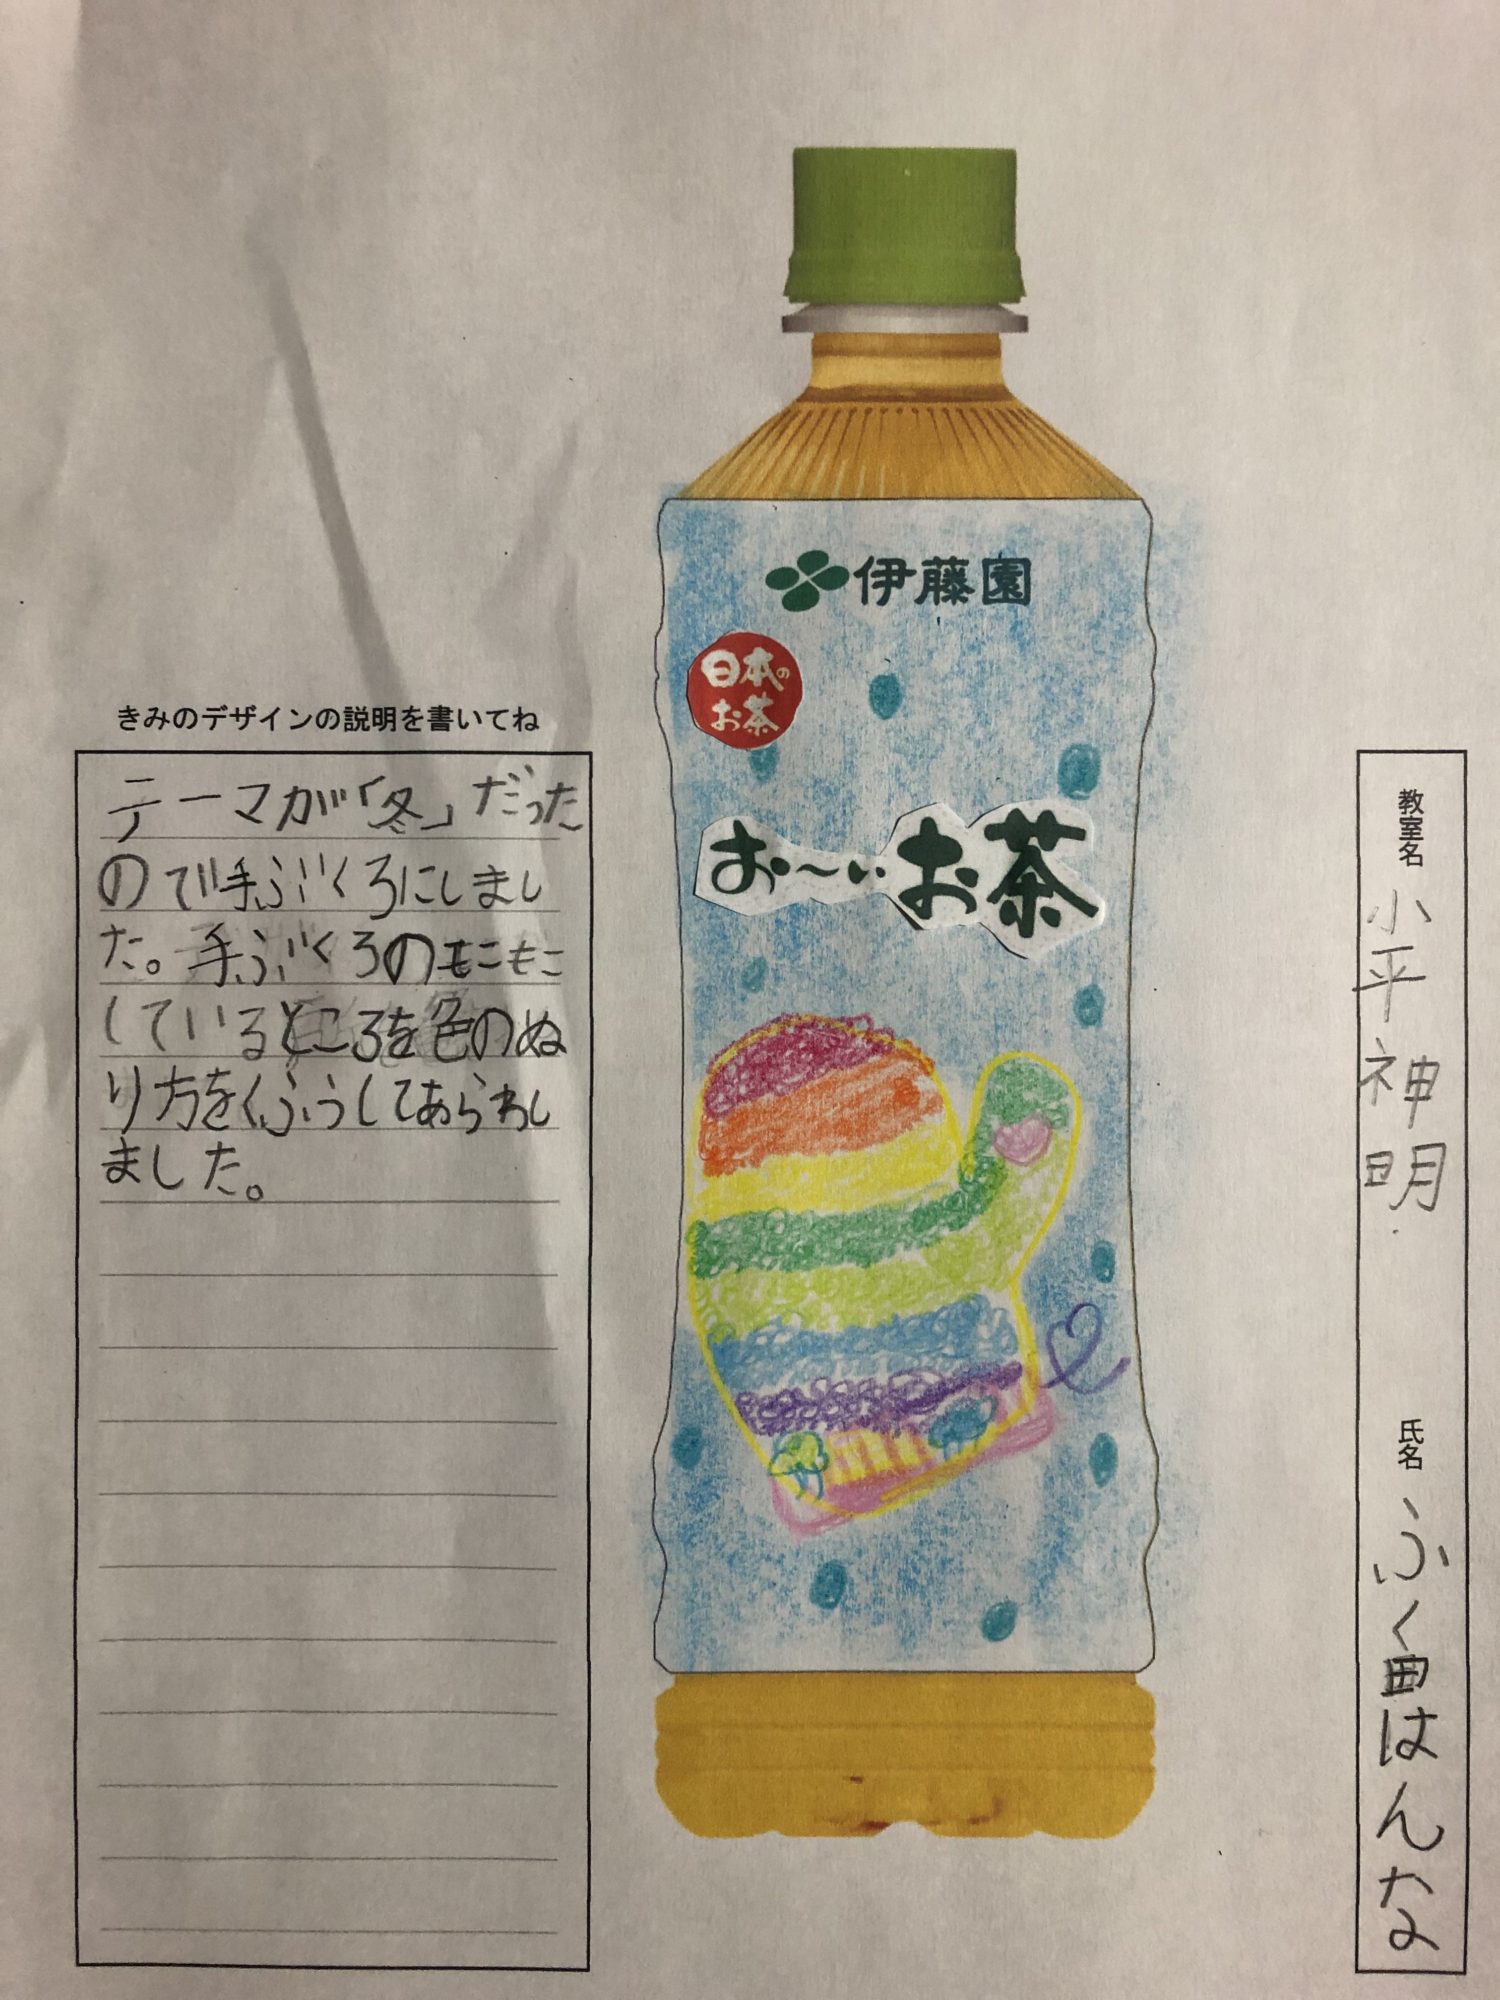 伊藤園
日本の
お茶
お～いお茶
きみのデザインの説明を書いてね
テーマが「冬」だった
ので手ぶくろにしまし
た。手ぶくろのモこモこ
しているところを色のぬ
り方をくふうしてあらわし
ました。
教室名 小平神明
氏名 ふく田はんな